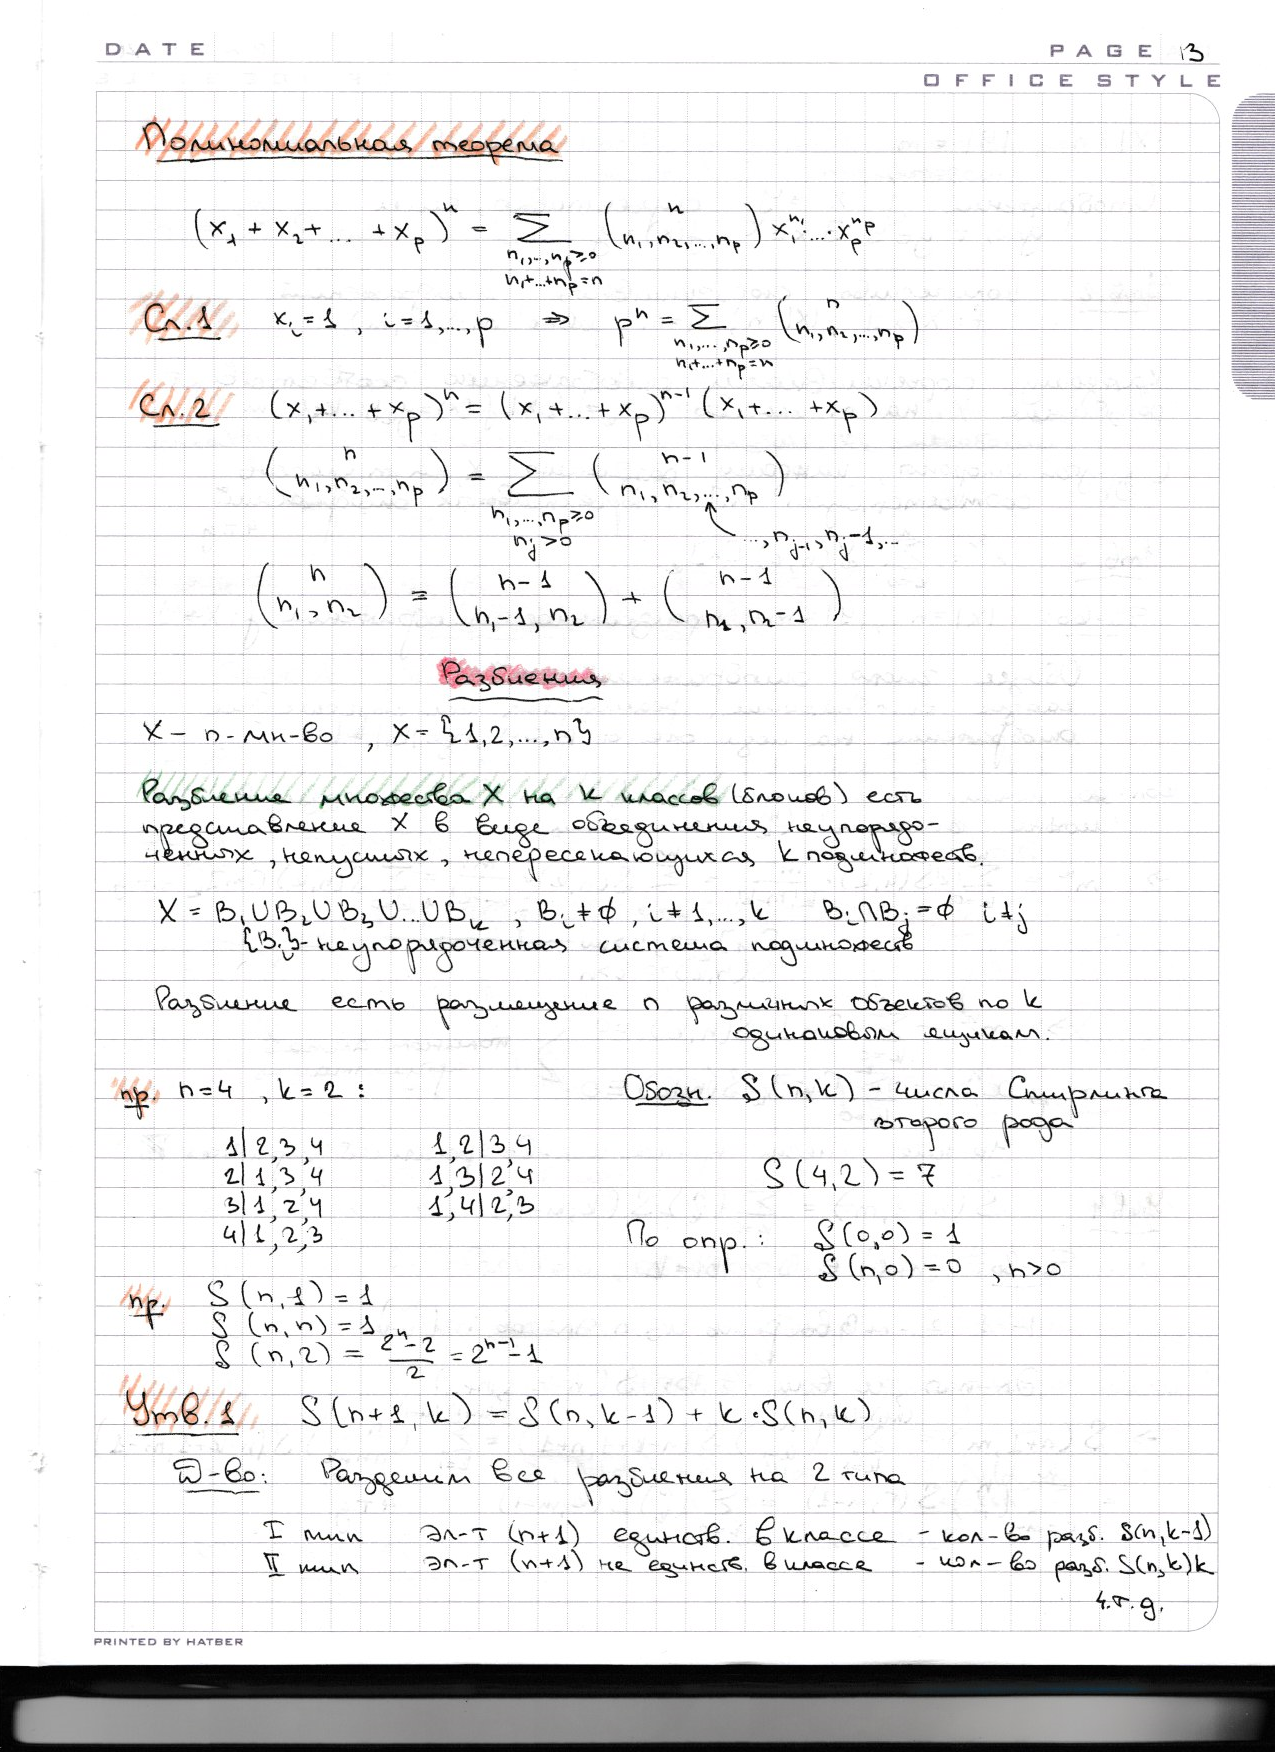 DATE
PAGE 13
OFFICE STYLE
Полиномиальная теорема
(x₁ + x₂ + ... + x_p)ⁿ = Σ_{n₁,...,n_p ≥ 0, n₁+...+n_p = n} (n / n₁, n₂, ..., n_p) x₁^{n₁} · ... · x_p^{n_p}
Сл. 1 x_i = 1, i = 1, ..., p ⇒ pⁿ = Σ_{n₁,...,n_p ≥ 0, n₁+...+n_p = n} (n / n₁, n₂, ..., n_p)
Сл. 2 (x₁ + ... + x_p)ⁿ = (x₁ + ... + x_p)^{n-1} (x₁ + ... + x_p)
(n / n₁, n₂, ..., n_p) = Σ_{n₁,...,n_p ≥ 0, n_j > 0} (n-1 / n₁, n₂, ..., n_p)
..., n_{j-1}, n_j - 1, ...
(n / n₁, n₂) = (n-1 / n₁-1, n₂) + (n-1 / n₁, n₂-1)
Разбиения
X – n-мн-во, X = {1, 2, ..., n}
Разбиение множества X на k классов (блоков) есть
представление X в виде объединения неупорядо-
ченных, непустых, непересекающихся k подмножеств.
X = B₁ ∪ B₂ ∪ B₃ ∪ ... ∪ B_k, B_i ≠ ∅, i ≠ 1, ..., k B_i ∩ B_j = ∅ i ≠ j
{B_i} - неупорядоченная система подмножеств
Разбиение есть размещение n различных объектов по k
одинаковым ящикам.
пр. n=4, k=2:
1|2,3,4 1,2|3,4
2|1,3,4 1,3|2,4
3|1,2,4 1,4|2,3
4|1,2,3
Обозн. S(n,k) – числа Стирлинга
второго рода
S(4,2) = 7
По опр.: S(0,0) = 1
S(n,0) = 0, n>0
пр. S(n,1) = 1
S(n,n) = 1
S(n,2) = (2ⁿ-2)/2 = 2^{n-1} - 1
Утв. 1 S(n+1, k) = S(n, k-1) + k · S(n, k)
Д-во: Разделим все разбиения на 2 типа
I тип эл-т (n+1) единств. в классе - кол-во разб. S(n,k-1)
II тип эл-т (n+1) не единств. в классе - кол-во разб. S(n,k)k
ч.т.д.
PRINTED BY HATBER